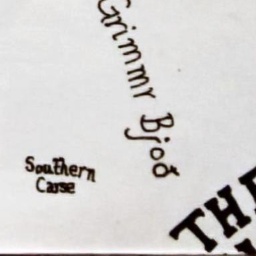 Grimmr Bjoð
Southern
Carse
THE